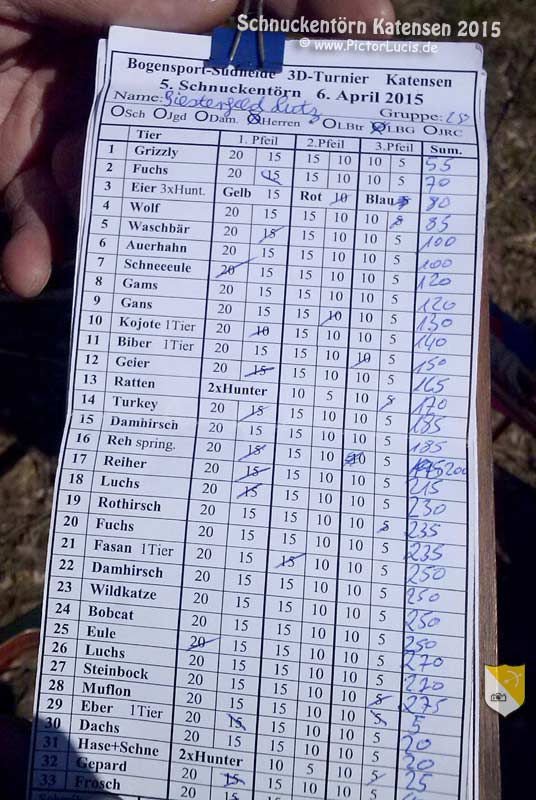 Schnuckentörn Katensen 2015
© www.PictorLucis.de
Bogensport-Südheide 3D-Turnier Katensen
5. Schnuckentörn 6. April 2015
Name: Gruppe:
Sch Jgd Dam. Herren LBtr LBG JRC
Tier 1. Pfeil 2.Pfeil 3.Pfeil Sum.
1 Grizzly 20 15 15 10 10 5 55
2 Fuchs 20 15 15 10 10 5 70
3 Eier 3xHunt. Gelb 15 Rot 10 Blau 5 80
4 Wolf 20 15 15 10 10 5 85
5 Waschbär 20 15 15 10 10 5 100
6 Auerhahn 20 15 15 10 10 5 100
7 Schneeeule 20 15 15 10 10 5 120
8 Gams 20 15 15 10 10 5 120
9 Gans 20 15 15 10 10 5 130
10 Kojote 1Tier 20 10 15 10 10 5 140
11 Biber 1Tier 20 15 15 10 10 5 150
12 Geier 20 15 15 10 10 5 165
13 Ratten 2xHunter 10 5 10 5 170
14 Turkey 20 15 15 10 10 5 185
15 Damhirsch 20 15 15 10 10 5 185
16 Reh spring. 20 15 15 10 10 5 200
17 Reiher 20 15 15 10 10 5 215
18 Luchs 20 15 15 10 10 5 230
19 Rothirsch 20 15 15 10 10 5 235
20 Fuchs 20 15 15 10 10 5 235
21 Fasan 1Tier 20 15 15 10 10 5 250
22 Damhirsch 20 15 15 10 10 5 250
23 Wildkatze 20 15 15 10 10 5 250
24 Bobcat 20 15 15 10 10 5 250
25 Eule 20 15 15 10 10 5 270
26 Luchs 20 15 15 10 10 5 270
27 Steinbock 20 15 15 10 10 5 275
28 Muflon 20 15 15 10 10 5 5
29 Eber 1Tier 20 15 15 10 10 5 20
30 Dachs 20 15 15 10 10 5 20
31 Hase+Schne 2xHunter 10 5 10 5 25
32 Gepard 20 15 15 10 10 5
33 Frosch 20 15 15 10 10 5